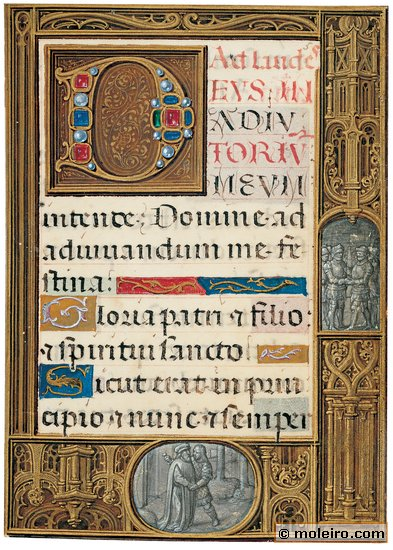 Ad laudes
DEVS IN
ADIV
TORIV
MEVM
intende: Domine ad
adiuuandum me fe
stina:
Gloria patri & filio
& spiritui sancto
Sicut erat in prin
cipio & nunc & semper
© moleiro.com